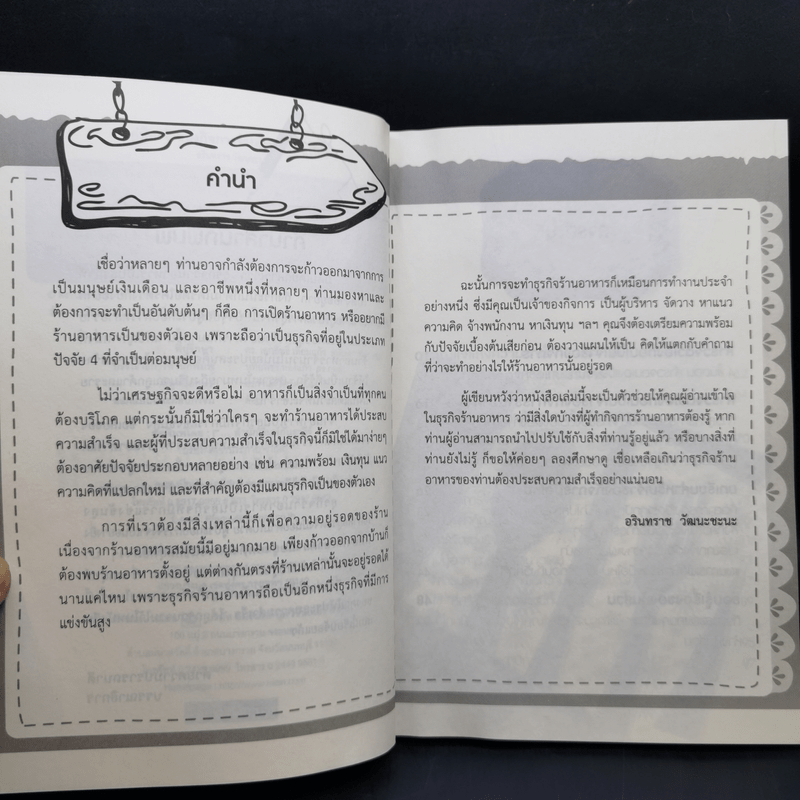 คำนำ
เชื่อว่าหลายๆ ท่านอาจกำลังต้องการจะก้าวออกมาจากการ
เป็นมนุษย์เงินเดือน และอาชีพหนึ่งที่หลายๆ ท่านมองหาและ
ต้องการจะทำเป็นอันดับต้นๆ ก็คือ การเปิดร้านอาหาร หรืออยากมี
ร้านอาหารเป็นของตัวเอง เพราะถือว่าเป็นธุรกิจที่อยู่ในประเภท
ปัจจัย 4 ที่จำเป็นต่อมนุษย์
ไม่ว่าเศรษฐกิจจะดีหรือไม่ อาหารก็เป็นสิ่งจำเป็นที่ทุกคน
ต้องบริโภค แต่กระนั้นก็มิใช่ว่าใครๆ จะทำร้านอาหารได้ประสบ
ความสำเร็จ และผู้ที่ประสบความสำเร็จในธุรกิจนี้ก็มิใช่ได้มาง่ายๆ
ต้องอาศัยปัจจัยประกอบหลายอย่าง เช่น ความพร้อม เงินทุน แนว
ความคิดที่แปลกใหม่ และที่สำคัญต้องมีแผนธุรกิจเป็นของตัวเอง
การที่เราต้องมีสิ่งเหล่านี้ก็เพื่อความอยู่รอดของร้าน
เนื่องจากร้านอาหารสมัยนี้มีอยู่มากมาย เพียงก้าวออกจากบ้านก็
ต้องพบร้านอาหารตั้งอยู่ แต่ต่างกันตรงที่ร้านเหล่านั้นจะอยู่รอดได้
นานแค่ไหน เพราะธุรกิจร้านอาหารถือเป็นอีกหนึ่งธุรกิจที่มีการ
แข่งขันสูง
ฉะนั้นการจะทำธุรกิจร้านอาหารก็เหมือนการทำงานประจำ
อย่างหนึ่ง ซึ่งมีคุณเป็นเจ้าของกิจการ เป็นผู้บริหาร จัดวาง หาแนว
ความคิด จ้างพนักงาน หาเงินทุน ฯลฯ คุณจึงต้องเตรียมความพร้อม
กับปัจจัยเบื้องต้นเสียก่อน ต้องวางแผนให้เป็น คิดให้แตกกับคำถาม
ที่ว่าจะทำอย่างไรให้ร้านอาหารนั้นอยู่รอด
ผู้เขียนหวังว่าหนังสือเล่มนี้จะเป็นตัวช่วยให้คุณผู้อ่านเข้าใจ
ในธุรกิจร้านอาหาร ว่ามีสิ่งใดบ้างที่ผู้ทำกิจการร้านอาหารต้องรู้ หาก
ท่านผู้อ่านสามารถนำไปปรับใช้กับสิ่งที่ท่านรู้อยู่แล้ว หรือบางสิ่งที่
ท่านยังไม่รู้ ก็ขอให้ค่อยๆ ลองศึกษาดู เชื่อเหลือเกินว่าธุรกิจร้าน
อาหารของท่านต้องประสบความสำเร็จอย่างแน่นอน
อรินทราช วัฒนะชะนะ